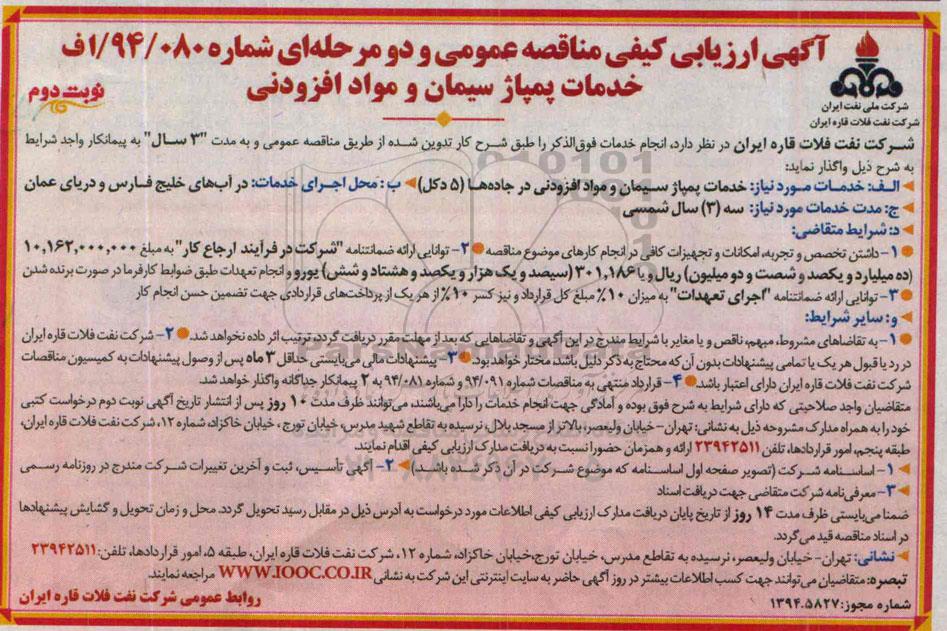 آگهی ارزیابی کیفی مناقصه عمومی و دو مرحله‌ای شماره ۹۴/۰۸۰/ف۱
خدمات پمپاژ سیمان و مواد افزودنی
نوبت دوم
شرکت ملی نفت ایران
شرکت نفت فلات قاره ایران
شرکت نفت فلات قاره ایران در نظر دارد، انجام خدمات فوق‌الذکر را طبق شرح کار تدوین شده از طریق مناقصه عمومی و به مدت "۳ سال" به پیمانکار واجد شرایط
به شرح ذیل واگذار نماید:
الف: خدمات مورد نیاز: خدمات پمپاژ سیمان و مواد افزودنی در جاده‌ها (۵ دکل) ب: محل اجرای خدمات: در آب‌های خلیج فارس و دریای عمان
ج: مدت خدمات مورد نیاز: سه (۳) سال شمسی
د: شرایط متقاضی:
۱- داشتن تخصص و تجربه، امکانات و تجهیزات کافی در انجام کارهای موضوع مناقصه ۲- توانایی ارائه ضمانتنامه "شرکت در فرآیند ارجاع کار" به مبلغ ۱۰,۱۶۲,۰۰۰,۰۰۰
(ده میلیارد و یکصد و شصت و دو میلیون) ریال و یا ۳۰۱,۱۸۶ (سیصد و یک هزار و یکصد و هشتاد و شش) یورو و انجام تعهدات طبق ضوابط کارفرما در صورت برنده شدن
۳- توانایی ارائه ضمانتنامه "اجرای تعهدات" به میزان ۱۰٪ مبلغ کل قرارداد و نیز کسر ۱۰٪ از هر یک از پرداخت‌های قراردادی جهت تضمین حسن انجام کار
و: سایر شرایط:
۱- به تقاضاهای مشروط، مبهم، ناقص و یا مغایر با شرایط مندرج در این آگهی و تقاضاهایی که بعد از مهلت مقرر دریافت گردد، ترتیب اثر داده نخواهد شد. ۲- شرکت نفت فلات قاره ایران
در رد یا قبول هر یک یا تمامی پیشنهادات بدون آن که محتاج به ذکر دلیل باشد، مختار خواهد بود. ۳- پیشنهادات مالی می‌بایستی حداقل ۳ ماه پس از وصول پیشنهادات به کمیسیون مناقصات
شرکت نفت فلات قاره ایران دارای اعتبار باشد. ۴- قرارداد منتهی به مناقصات شماره ۹۴/۰۹۱ و شماره ۹۴/۰۸۱ به ۲ پیمانکار جداگانه واگذار خواهد شد.
متقاضیان واجد صلاحیتی که دارای شرایط به شرح فوق بوده و آمادگی جهت انجام خدمات را دارا می‌باشند، می‌توانند ظرف مدت ۱۰ روز پس از انتشار تاریخ آگهی نوبت دوم درخواست کتبی
خود را به همراه مدارک مشروحه ذیل به نشانی: تهران- خیابان ولیعصر، بالاتر از مسجد بلال، نرسیده به تقاطع شهید مدرس، خیابان تورج، خیابان خاکزاد، شماره ۱۲، شرکت نفت فلات قاره ایران،
طبقه پنجم، امور قراردادها، تلفن ۲۳۹۴۲۵۱۱ ارائه و همزمان حضورا نسبت به دریافت مدارک ارزیابی کیفی اقدام نمایند.
۱- اساسنامه شرکت (تصویر صفحه اول اساسنامه که موضوع شرکت در آن ذکر شده باشد) ۲- آگهی تأسیس، ثبت و آخرین تغییرات شرکت مندرج در روزنامه رسمی
۳- معرفی‌نامه شرکت متقاضی جهت دریافت اسناد
ضمنا می‌بایستی ظرف مدت ۱۴ روز از تاریخ پایان دریافت مدارک ارزیابی کیفی اطلاعات مورد درخواست به آدرس ذیل در مقابل رسید تحویل گردد. محل و زمان تحویل و گشایش پیشنهادها
در اسناد مناقصه قید می‌گردد.
نشانی: تهران- خیابان ولیعصر، نرسیده به تقاطع مدرس، خیابان تورج، خیابان خاکزاد، شماره ۱۲، شرکت نفت فلات قاره ایران، طبقه ۵، امور قراردادها، تلفن: ۲۳۹۴۲۵۱۱
تبصره: متقاضیان می‌توانند جهت کسب اطلاعات بیشتر در روز آگهی حاضر به سایت اینترنتی این شرکت به نشانی WWW.IOOC.CO.IR مراجعه نمایند.
شماره مجوز: ۱۳۹۴.۵۸۲۷
روابط عمومی شرکت نفت فلات قاره ایران